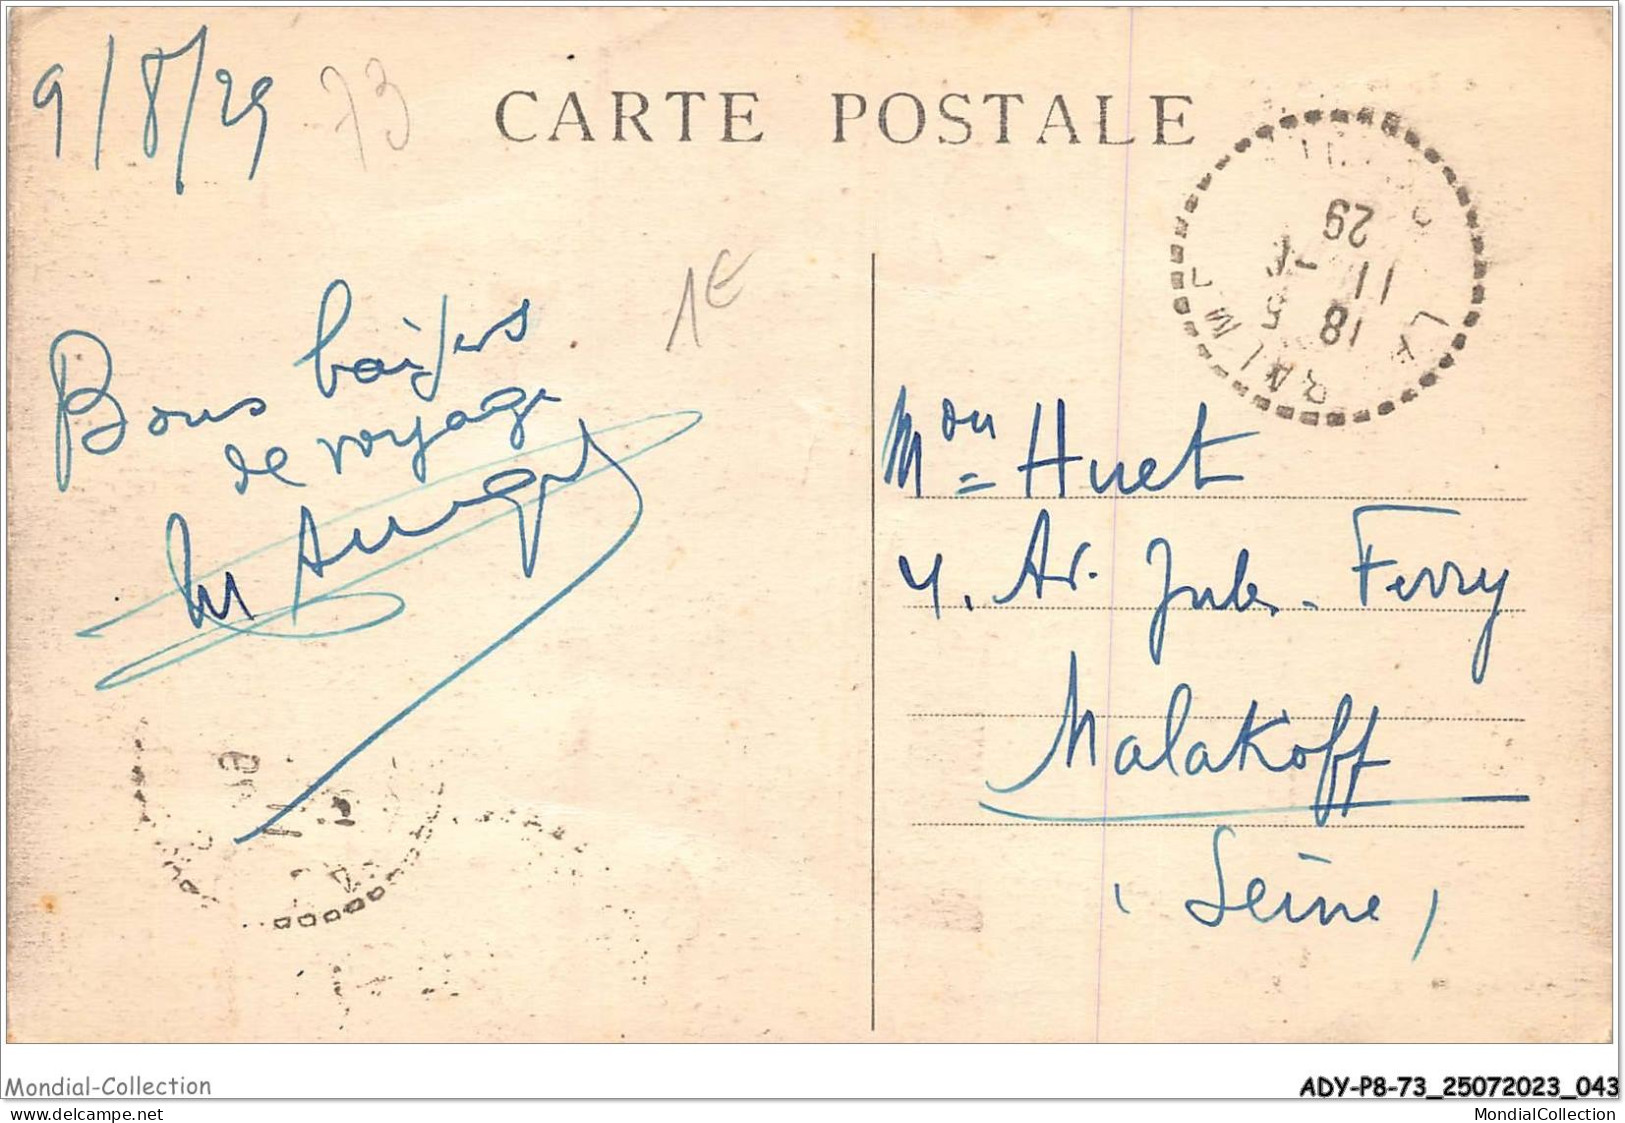 9/8/29
73
CARTE POSTALE
29
11
18
5
1€
Bons baisers
de voyage
Mon Huet
4. Av. Jules-Ferry
Malakoff
(Seine)
Mondial-Collection
ADY-P8-73_25072023_043
www.delcampe.net
MondialCollection